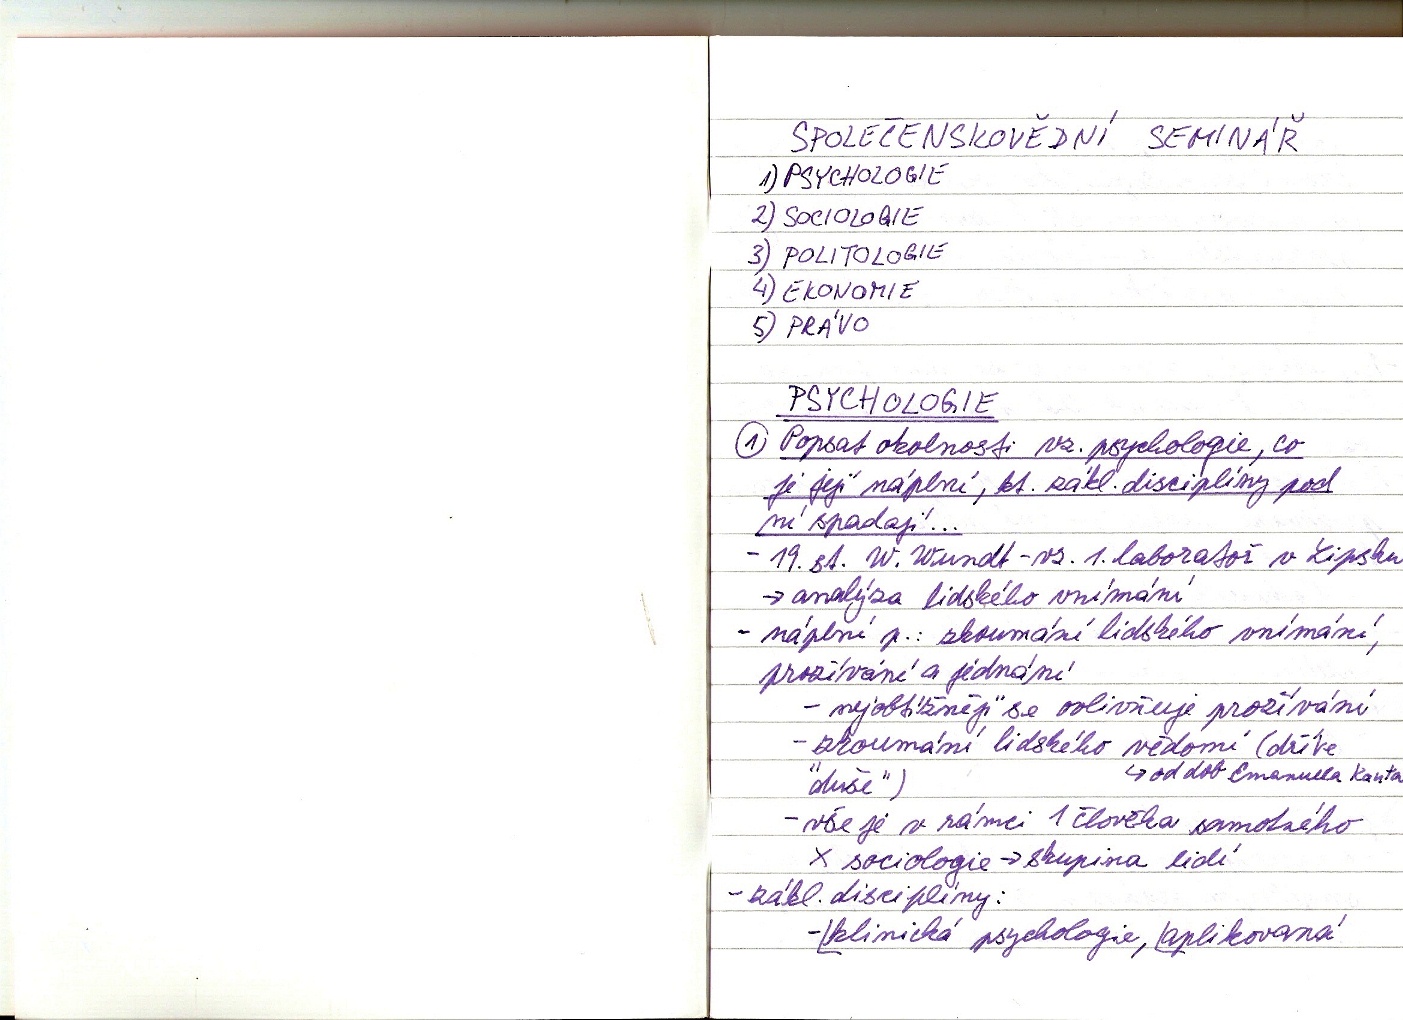 SPOLEČENSKOVĚDNÍ SEMINÁŘ
1) PSYCHOLOGIE
2) SOCIOLOGIE
3) POLITOLOGIE
4) EKONOMIE
5) PRÁVO
PSYCHOLOGIE
1) Popsat okolnosti vz. psychologie, co
je její náplní, kt. zákl. disciplíny pod
ní spadají...
- 19. st. W. Wundt - vz. 1. laboratoř v Lipsku
→ analýza lidského vnímání
- náplní p.: zkoumání lidského vnímání,
prožívání a jednání
- nejobtížněji se ovlivňuje prožívání
- zkoumání lidského vědomí (dříve
"duše") ↳ od dob Emanuella Kanta
- vše je v rámci 1 člověka samotného
X sociologie → skupina lidí
- zákl. disciplíny:
- klinická psychologie, aplikovaná